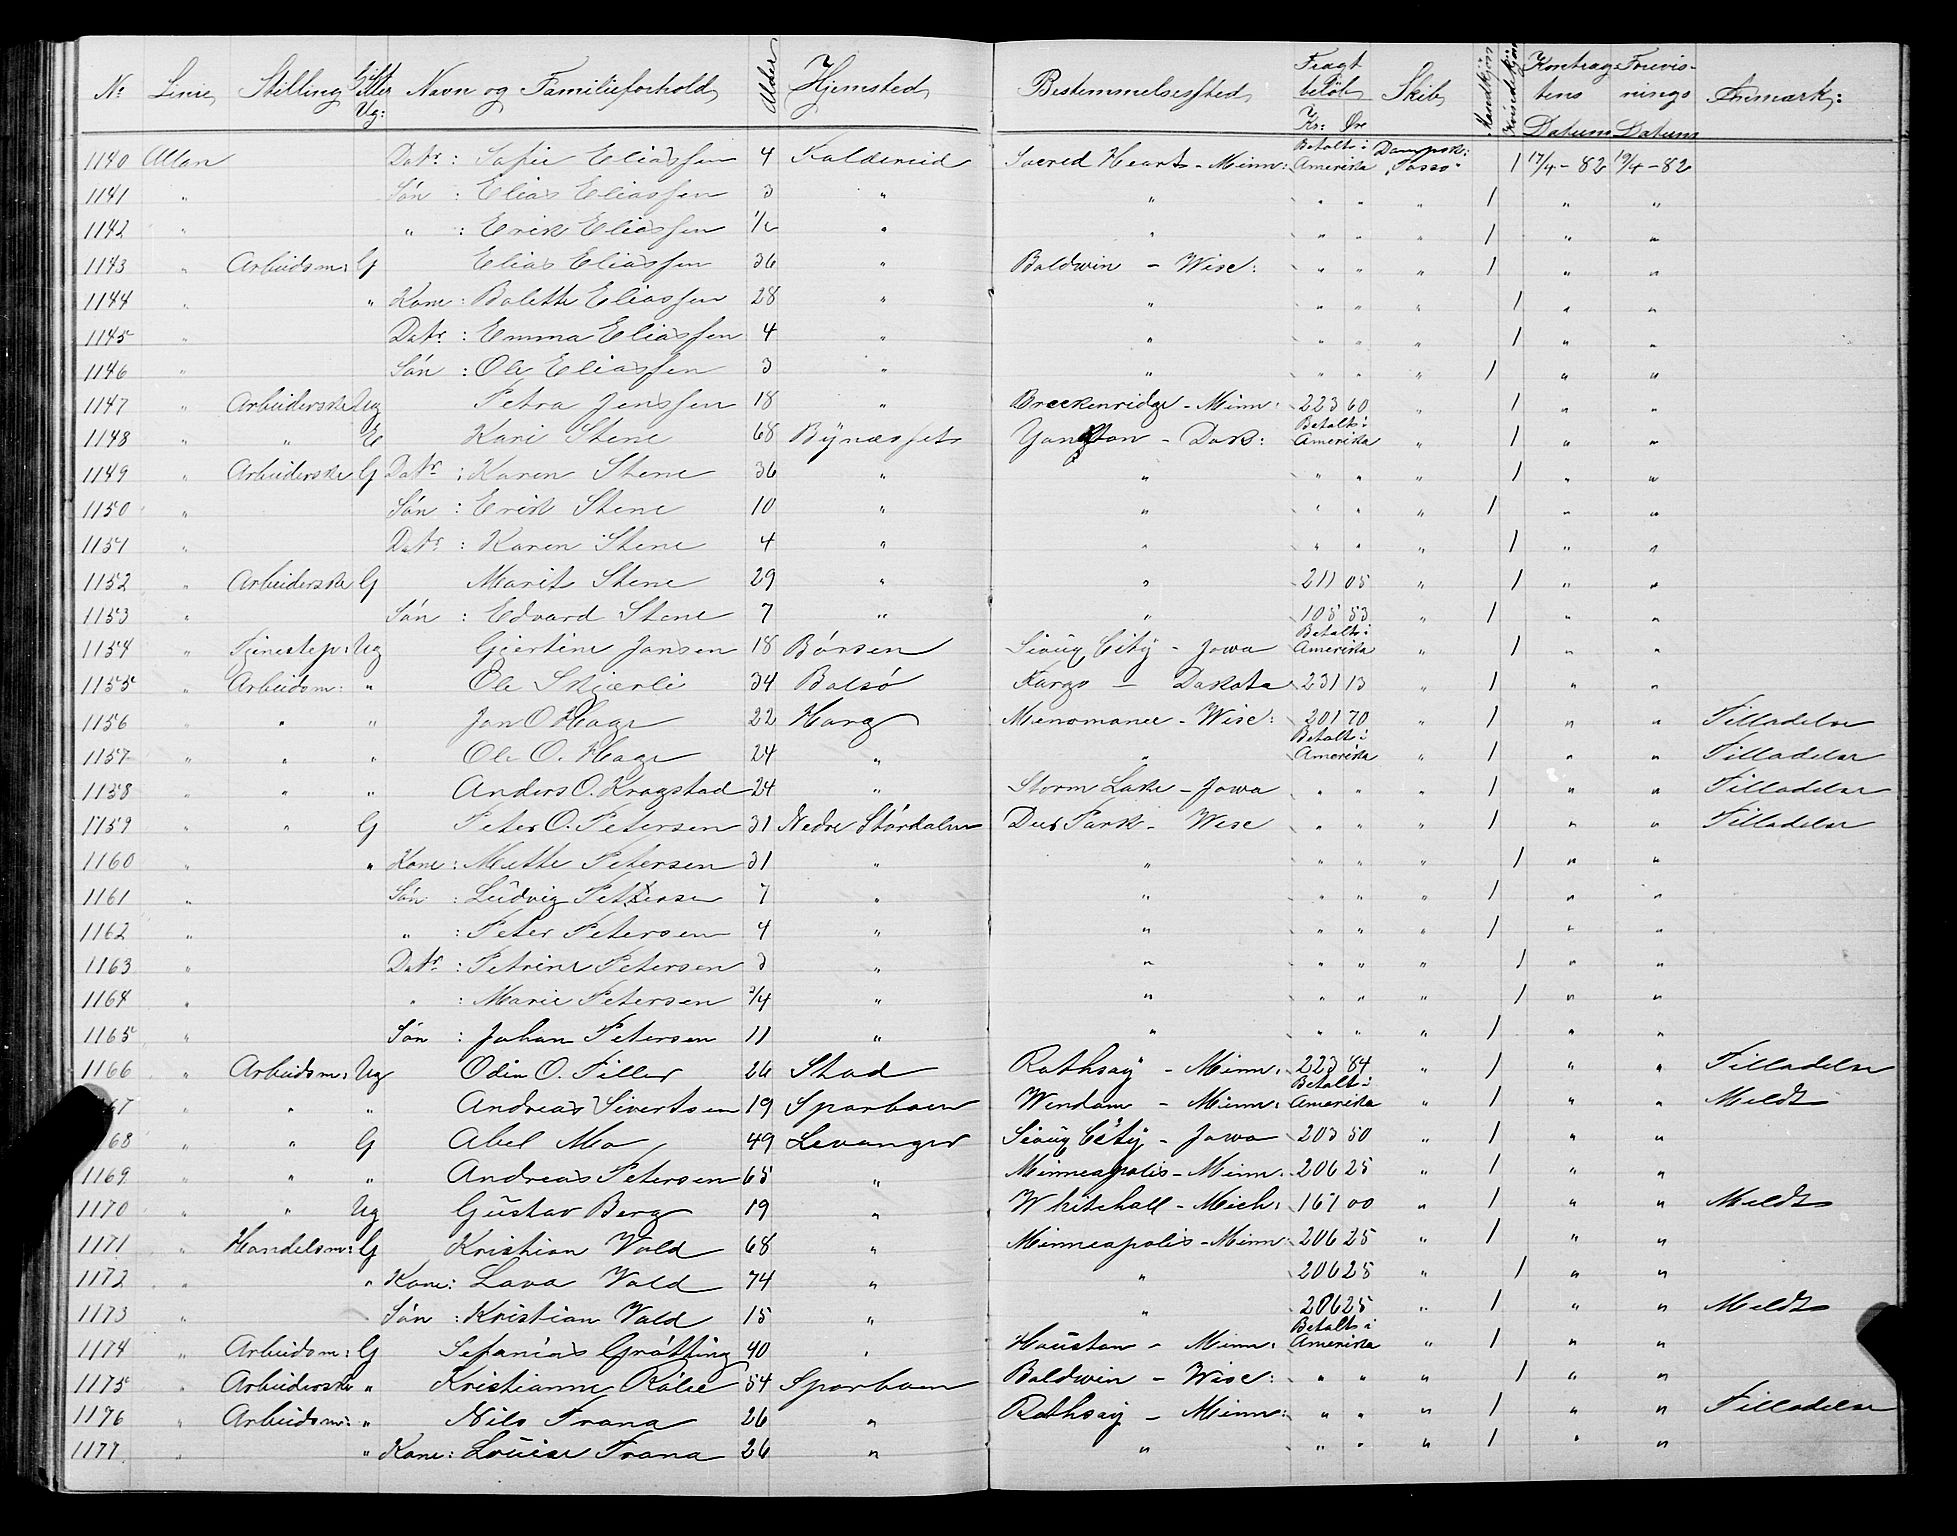 No Linie Stilling Gift eller Ug: Navn og Familieforhold Alder Hjemsted Bestemmelsessted Fragtbeløb Kr: Øre Skib Mandkjøn Kvindekjøn Kontraktens Datum Forevisnings Datum Anmærk:
1140 Allan Datr: Sofie Eliassen 4 Koldereid Sacred Heart - Minn: Betalt i Amerika Dampsk: "Tasso" 1 17/4-82 19/4-82
1141 " Søn : Elias Eliassen 3 " " " " " 1 " "
1142 " " : Erik Eliassen 1/2 " " " " " 1 " "
1143 " Arbeidsm: G Elias Eliassen 36 " Baldwin - Wisc: " " " 1 " "
1144 " " Kone : Bolette Eliassen 28 " " " " " 1 " "
1145 " Datr. : Emma Eliassen 4 " " " " " 1 " "
1146 " Søn : Ole Eliassen 3 " " " " " 1 " "
1147 " Arbeiderske Ug Petra Jenssen 18 " Breckenridge - Minn: 223 60 " 1 " "
1148 " " E Kari Stene 68 Bynæsset Yankton - Dak: Betalt i Amerika " 1 " "
1149 " Arbeiderske G Datr : Karen Stene 36 " " " " " 1 " "
1150 " Søn : Erik Stene 10 " " " " " 1 " "
1151 " Datr : Karen Stene 4 " " " " " 1 " "
1152 " Arbeiderske G Marit Stene 29 " " 211 05 " 1 " "
1153 " Søn : Edvard Stene 7 " " 105 53 " 1 " "
1154 " Tjenestep: Ug Gjertine Jansen 18 Børsen Sioux City - Jowa Betalt i Amerika " 1 " "
1155 " Arbeidsm: " Ole Skjærli 34 Bolsø Fargo - Dakota 231 13 " 1 " "
1156 " " " Jon O. Hage 22 Harg Menomanee - Wisc: 201 70 " 1 " " Tilladelse
1157 " " " Ole O. Hage 24 " " Betalt i Amerika " 1 " " Tilladelse
1158 " " " Anders O. Kragstad 24 " Storm Lake - Jowa " " " 1 " " Tilladelse
1159 " " G Peter O. Petersen 31 Nedre Størdalen Deer Park - Wisc " " " 1 " " Tilladelse
1160 " " Kone : Mette Petersen 31 " " " " " 1 " "
1161 " Søn : Ludvig Petersen 7 " " " " " 1 " "
1162 " " : Peter Petersen 4 " " " " " 1 " "
1163 " Datr : Petrine Petersen 3 " " " " " 1 " "
1164 " " : Marie Petersen 3/4 " " " " " 1 " "
1165 " Søn : Johan Petersen 11 " " " " " 1 " "
1166 " Arbeidsm: Ug Odin O. Tiller 26 Stod Rothsay - Minn: 223 84 " 1 " " Tilladelse
67 " " " Andreas Sivertsen 19 Sparboen Windom - Minn: Betalt i Amerika " 1 " " Meldt
68 " " G Abel Mo 49 Levanger Sioux City - Jowa 203 50 " 1 " "
1169 " " " Andreas Petersen 65 " Minneapolis - Minn. 206 25 " 1 " "
1170 " " Ug Gustav Berg 19 " Whitehall - Mich: 167 00 " 1 " " Meldt
1171 " Handelsm: G Kristian Vold 68 " Minneapolis - Minn: 206 25 " 1 " "
1172 " " Kone: Lava Vold 74 " " 206 25 " 1 " "
1173 " Søn : Kristian Vold 15 " " 206 25 " 1 " " Meldt
1174 " Arbeidsm: G Sefanias Grøtting 40 " Houston - Minn: Betalt i Amerika " 1 " "
1175 " Arbeiderske " Kristianne 54 Sparboen Baldwin - Wisc: " " " 1 " "
1176 " Arbeidsm: " Nils Trana 26 " Rothsay - Minn: " " " 1 " " Tilladelse
1177 " " Kone: Louise Trana 26 " " " " " 1 " "